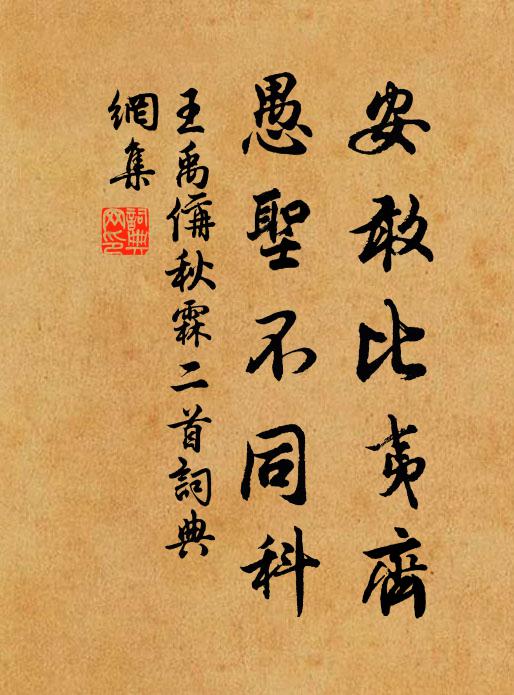 安敢比夷齊
愚聖不同科
王禹偁秋霖二首詞典
網集
詞典
网印